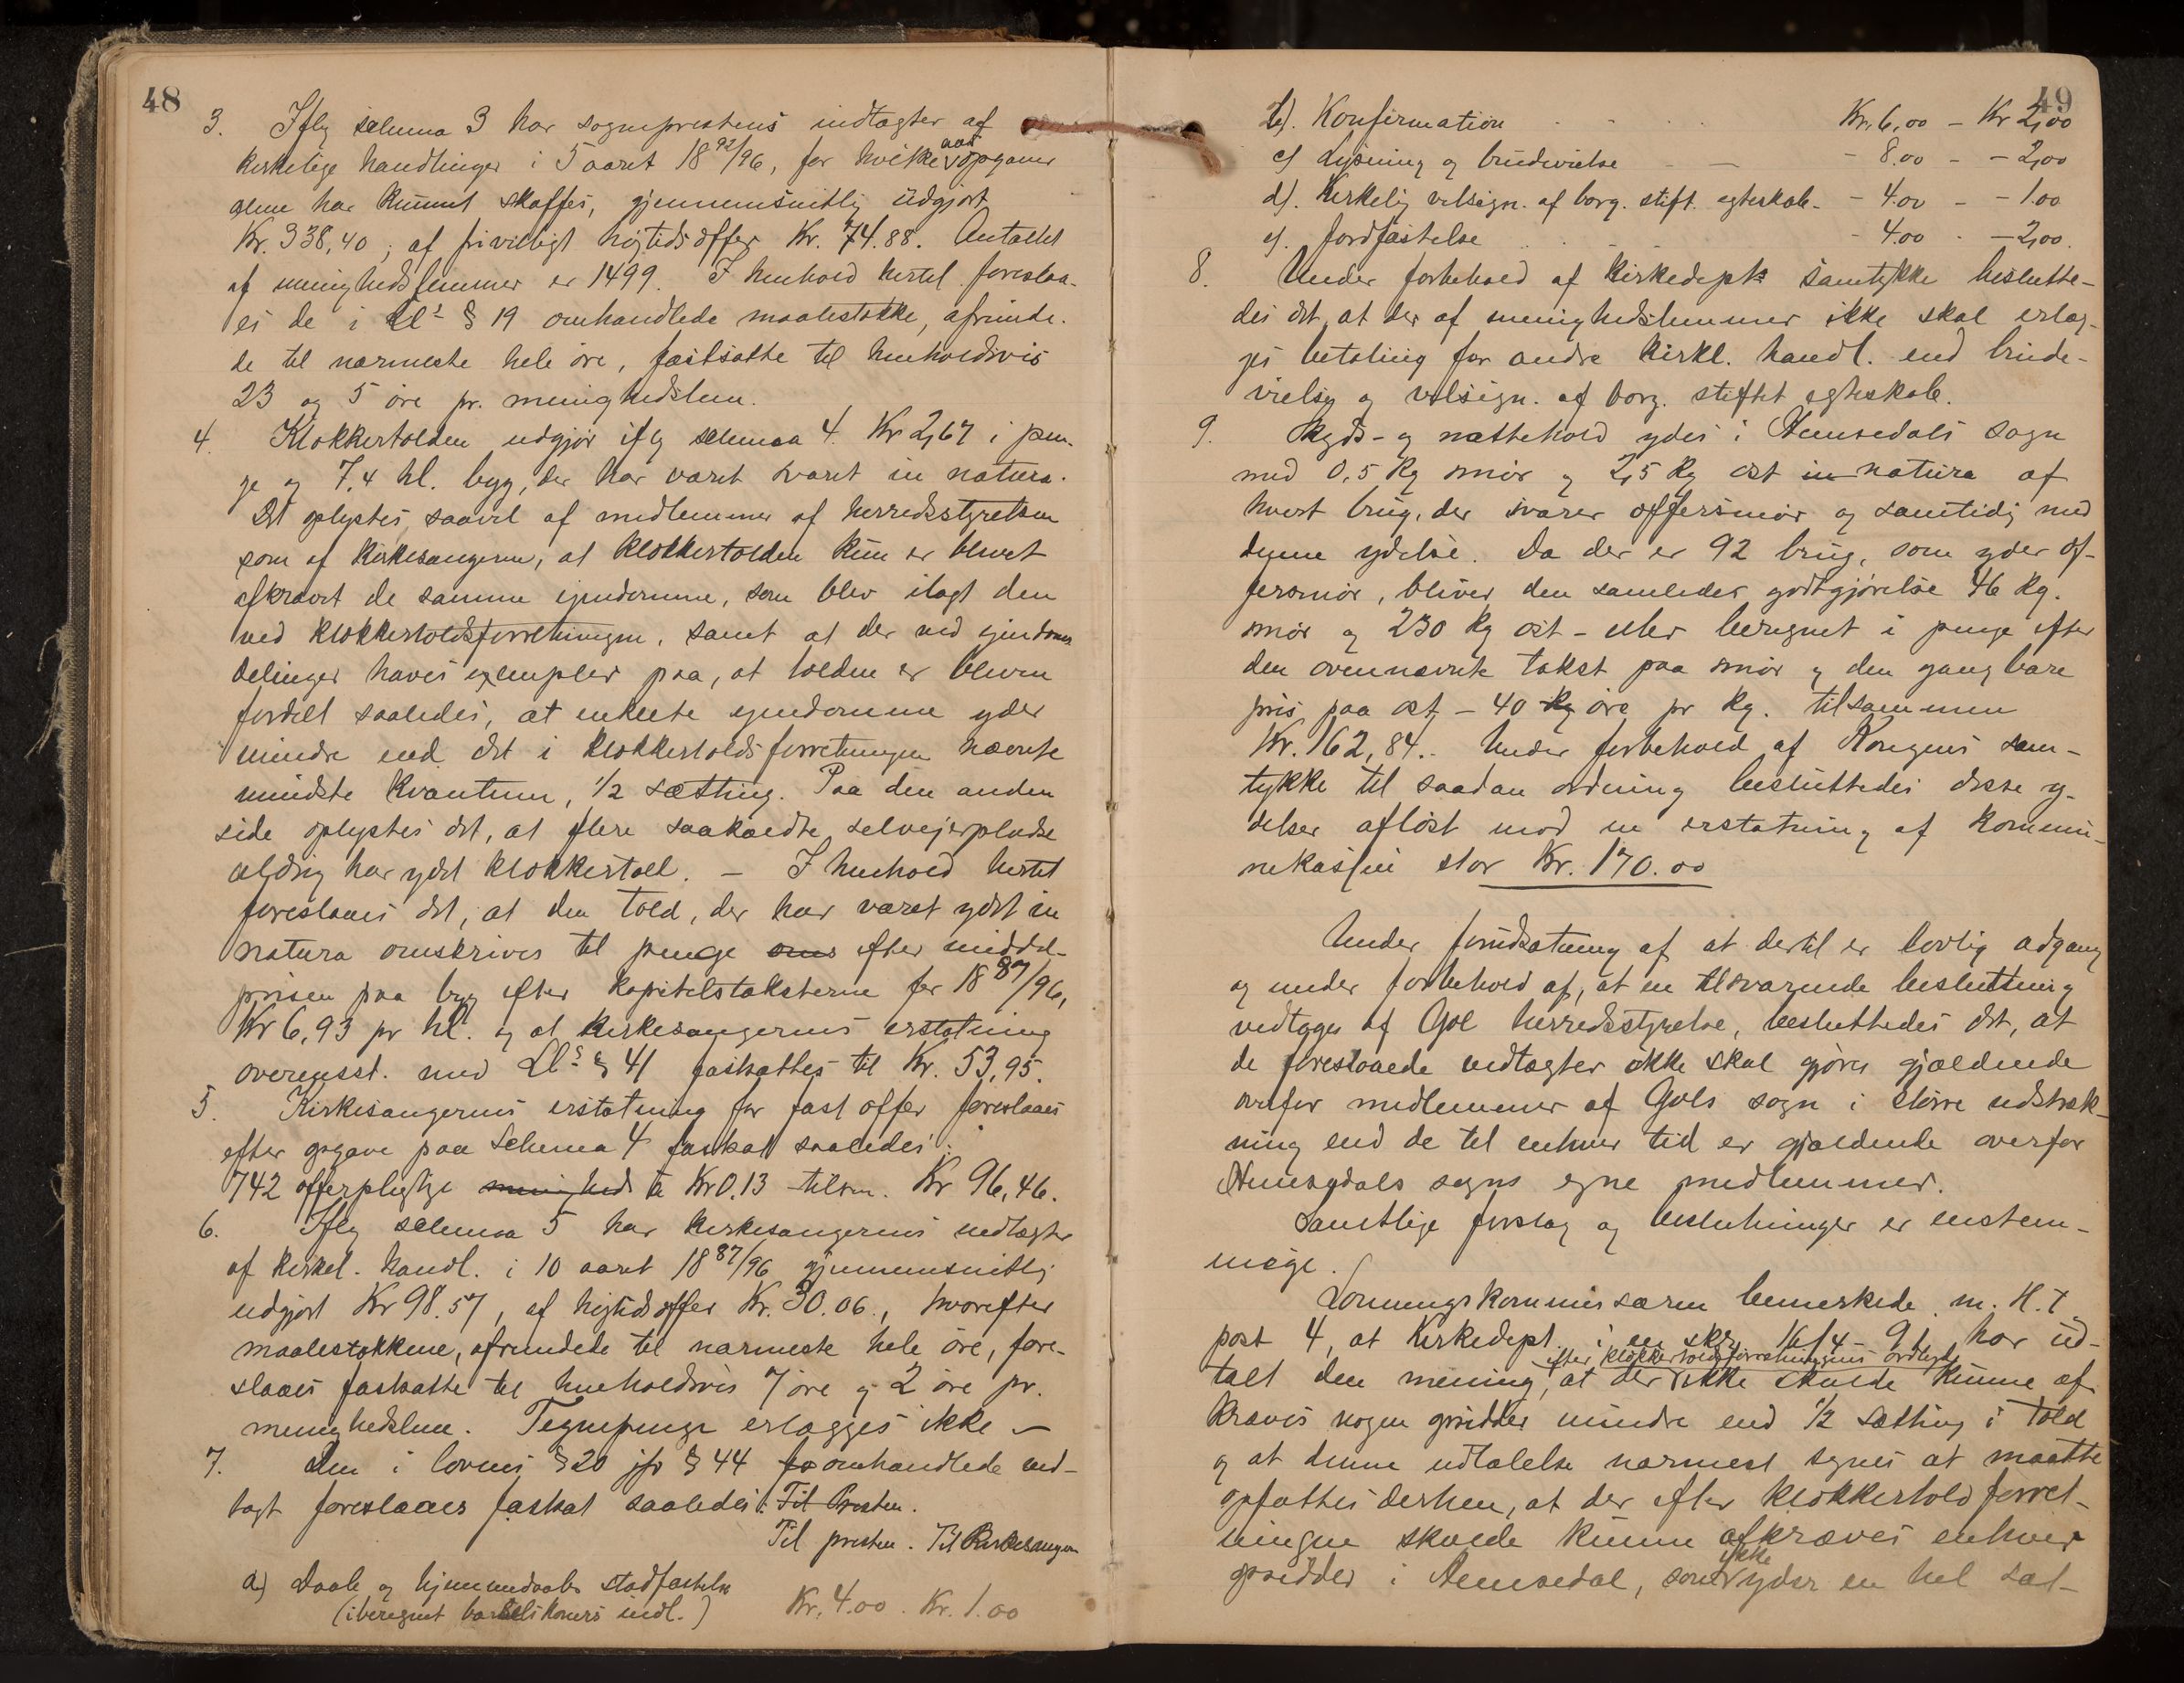 48
3. Iflg schema 3 har sogneprestens indtægter af
kirkelige handlinger i 5 aaret 18 92/96, for hvilke opgaver
alene har kunnet skaffes, gjennemsnitlig udgjort
Kr. 338,40; af frivilligt højtidsoffer Kr. 74.88. Antallet
af menighedslemmer er 1499. I henhold hertil foreslaa-
es de i Lls § 19 omhandlede maalestokke, afrunde-
de til nærmeste hele øre, fastsatte til henholdsvis
23 og 5 øre pr. menighedslem.
4. Klokkertolden udgjør iflg schema 4. Kr 2,67 i pen-
ge og 7,4 hl. byg, der har været svaret in natura.
Det oplystes, saavel af medlemmer af herredsstyrelsen
som af kirkesangeren, at klokkertolden kun er blevet
afkrævet de samme ejendomme, som blev ilagt den
ved klokkertoldsforretningen, samt at der ved ejendoms
delinger haves exempler paa, at tolden er bleven
fordelt saaledes, at enkelte ejendomme yder
mindre end det i klokkertoldsforretningen nævnte
mindste kvantum, 1/2 sætting. Paa den anden
side oplystes det, at flere saakaldte selvejerpladse
aldrig har ydet klokkertold. – I henhold hertil
foreslaaes det, at den told, der har været ydet in
natura omskrives til penge efter middel-
prisen paa byg efter kapitelstaksterne for 18 87/96,
Kr 6,93 pr hl. og at kirkesangerens erstatning
overensst. med Lls § 41 fastsættes til Kr. 53,95.
5. Kirkesangerens erstatning for fast offer foreslaaes
efter opgave paa Schema 4 fastsat saaledes:
742 offerpligtige menighed à Kr 0.13 tilsm. Kr 96,46.
6. Iflg schema 5 har kirkesangerens indtægter
af kirkel. handl. i 10 aaret 18 87/96 gjennemsnitlig
udgjort Kr 98.57, af højtidsoffer Kr. 30.06., hvorefter
maalestokkene, afrundede til nærmeste hele øre, fore-
slaaes fastsatte til henholdsvis 7 øre og 2 øre pr.
menighedslem. Tegnepenge erlægges ikke –
7. Den i lovens § 20 jfr § 44 fo omhandlede ved-
tægt foreslaaes fastsat saaledes: Til Presten.
Til presten. Til Kirkesangeren
a) Daab og hjemmedaabs stadfæstelse
(iberegnet barselkoners indl.) Kr. 4.00. Kr. 1.00
49
b). Konfirmation Kr. 6,00 – Kr 2,00
c) Lysning og brudevielse – 8.00 – – 2,00
d). Kirkelig velsign. af borg. stift. egteskab. – 4.00 – – 1.00
e). Jordfæstelse – 4.00 – 2,00.
8. Under forbehold af Kirkedepts samtykke beslutte-
des det, at der af menighedslemmer ikke skal erlæg-
ges betaling for andre kirkl. handl. end brude-
vielse og velsign. af borg. stiftet egteskab.
9. Skyds- og nattehold ydes i Hemsedals sogn
med 0,5 kg smør og 2,5 kg ost in natura af
hvert brug, der svarer offersmør og samtidig med
denne ydelse. Da der er 92 brug, som yder of-
fersmør, bliver den samlede godtgjørelse 46 kg.
smør og 230 kg ost – eller beregnet i penge efter
den ovennævnte takst paa smør og den gangbare
pris paa ost – 40 kg øre pr kg. tilsammen
Kr. 162,84. Under forbehold af Kongens sam-
tykke til saadan ordning besluttedes disse y-
delser afløst mod en erstatning af kommu-
nekassen stor Kr. 170.00
Under forudsætning af at dertil er lovlig adgang
og under forbehold af, at en tilsvarende beslutning
vedtages af Gol herredsstyrelse, besluttedes det, at
de foreslaaede vedtægter ikke skal gjøres gjældende
overfor medlemmer af Gols sogn i større udstræk-
ning end de til enhver tid er gjældende overfor
Hemsedals sogns egne medlemmer.
Samtlige forslag og beslutninger er enstem-
mige.
Lønningskommissæren bemerkede m. H. t
post 4, at Kirkedept. i en skr. 16/4 – 91 har ud-
talt den mening, at der efter klokkertoldsforretningens ordlyd ikke skulde kunne af
kræves nogen opsidder mindre end 1/2 sætting i told
og at denne udtalelse nærmest synes at maatte
opfattes derhen, at der efter klokkertoldforret-
ningen skulde kunne afkræves enhver
opsidder i Hemsedal, som ikke yder en hel sæt-